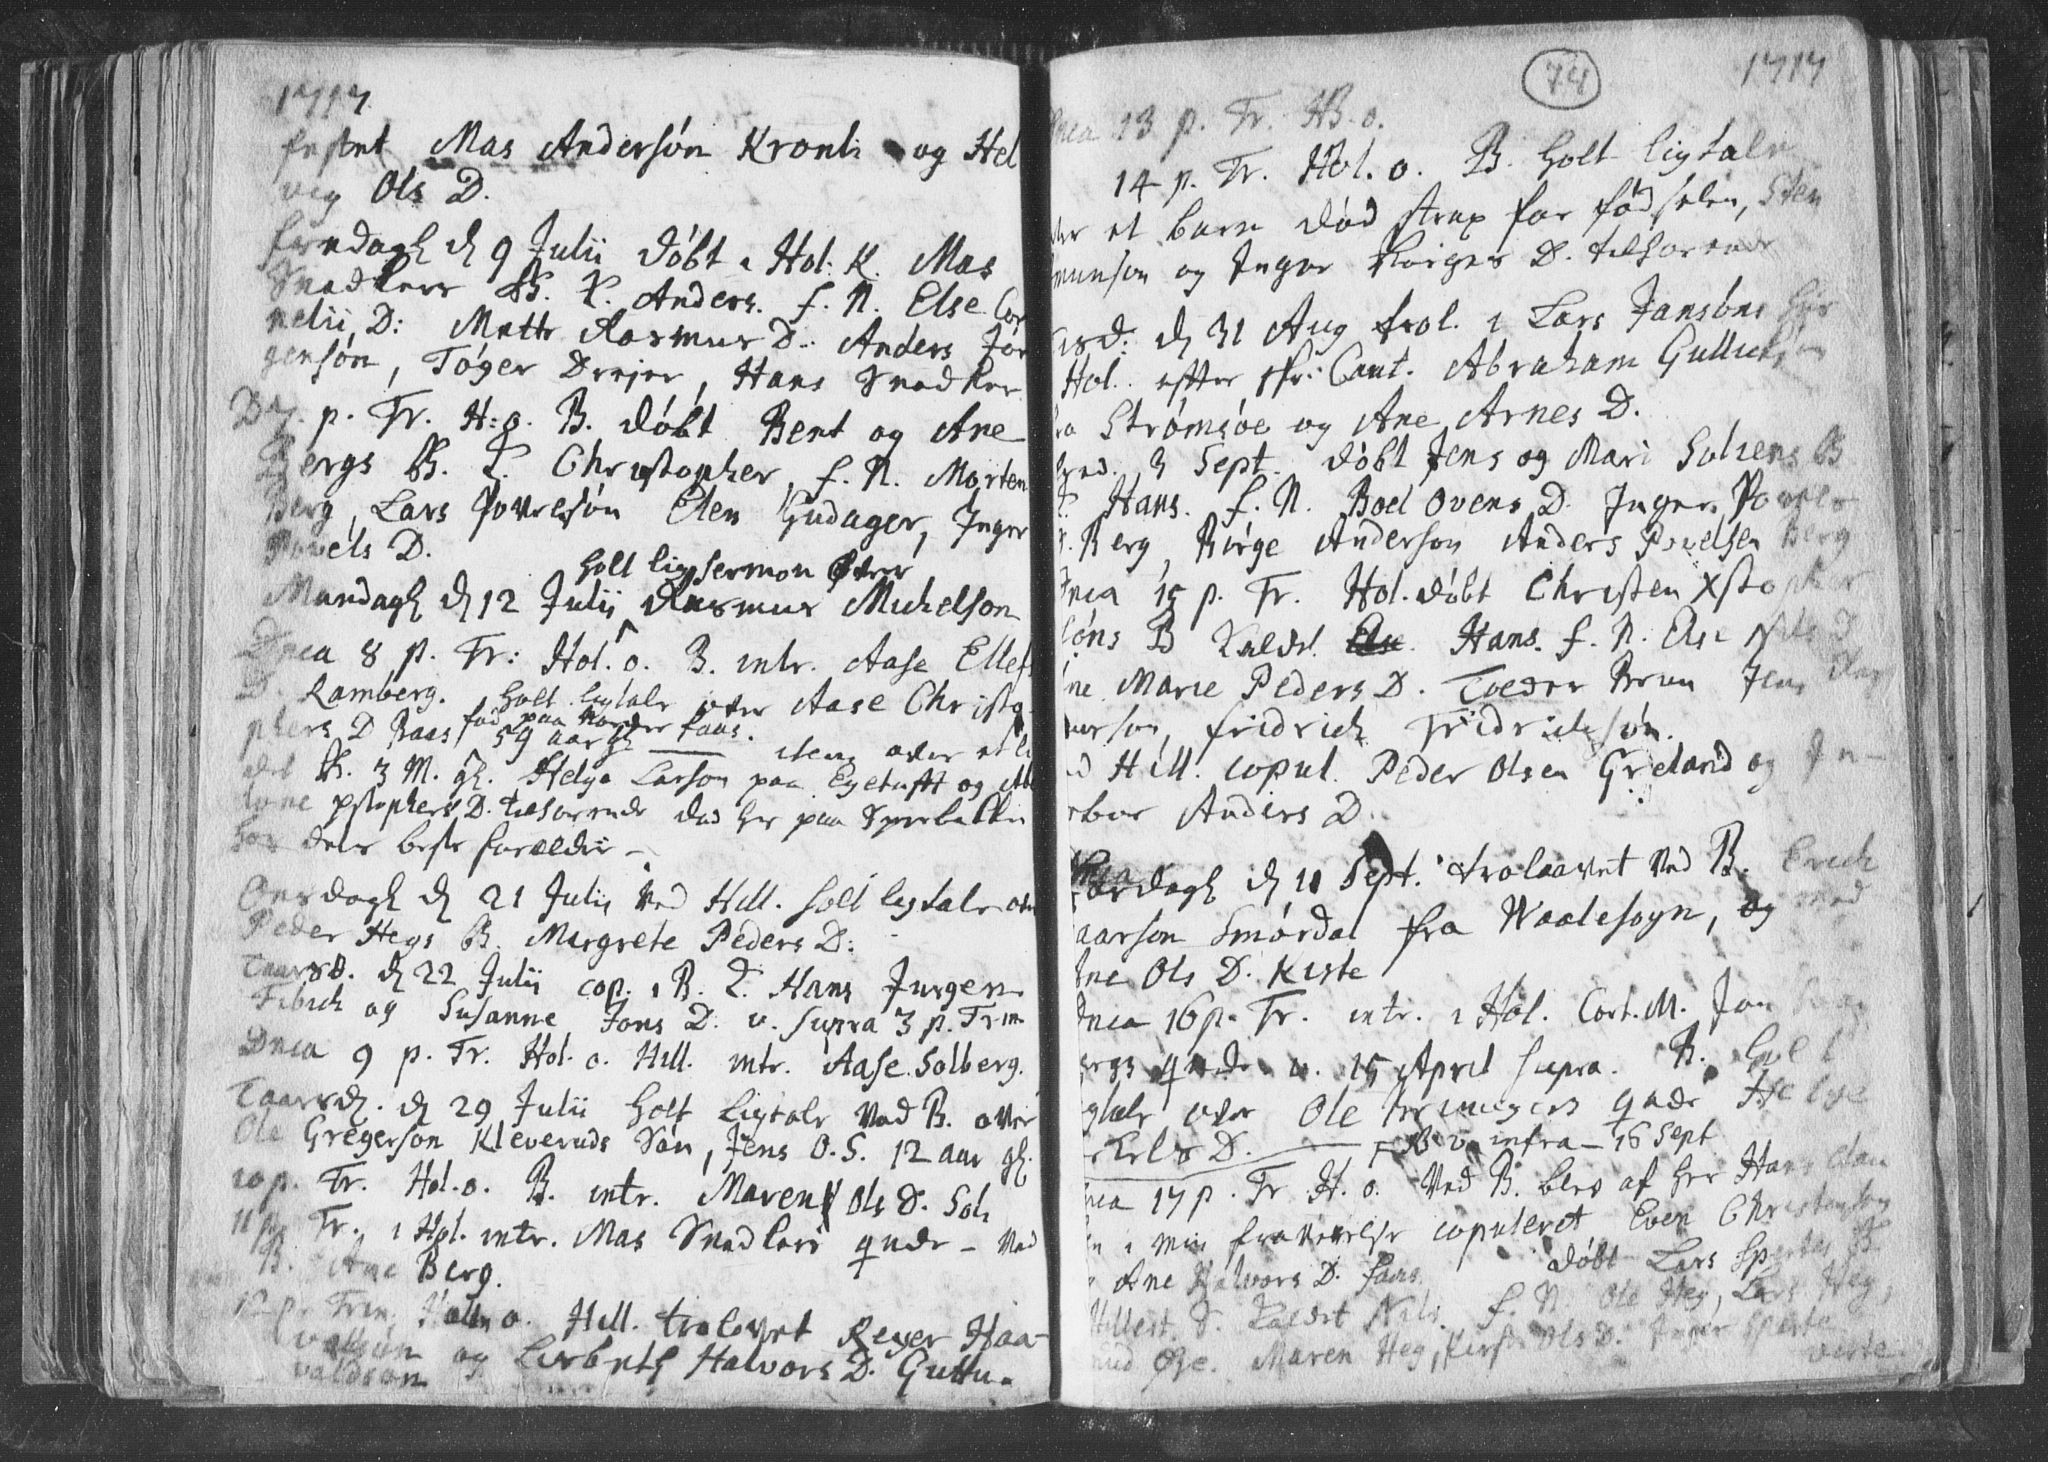 1717
festet Mas Andersøn Kronli og Hel
vig Ols D.
fredagh d 9 Julii døbt i Hol. K. Mas
Snedkers B. K. Anders. f. N. Else Cor
nelii D: Mette Rasmus D: Anders Jør
gensøn, Tøger Drejer, Hans Snedker
D 7. p. Tr. H: o. B. døbt Bent og Ane
Bergs B. K. Christopher. f. N. Morten
Berg, Lars Povelsøn Elen Gudager, Inger
Povels D.
holt ligsermon over
Mandagh d 12 Julii Rasmus Michelson
Dnica 8 p. Tr: Hol. o. B. intr. Aase Ellefs
D. Ramberg. holt ligtale over Aase Christo
phers D Baas fød paa Norder faas.
59 aar gl item over et li
det B. 3 M. gl. Helge Larson paa Egetufft og
pstophers D. tilhørende død her paa
hos dens beste forældre
Onsdagh d 21 Julii ved Hill. holt ligtale over
Peder Hegs B. Margrete Peders D:
Taarsd. d 22 Julii cop. i B. K. Hans Jurgen
Fibich og Susanne Jons D. v. supra 3 p. Trin
Dnica 9 p. Tr. Hol. o. Hill. intr. Aase Solberg.
Taarsd. d 29 Julii holt Ligtale ved B. over
Ole Gregerson Kleveruds Søn, Jens O.S. 12 aar gl.
10 p. Tr. Hol. o. B. intr. Maren Ols D. Soli
11 p. Tr. i Hol. intr. Mas Snedkers qvinde - ved
B. Ane Berg.
12 p. Trin. Holm o. Hill. trolovet Reyer Haa-
valdsøn og Lisbeth Halvors D. Guttu.
valdsøn
74
1717
Dnica 13 p. Tr. H B. o.
14 p. Tr. Hol. o. B. holt ligtale
over et barn død strax for fødselen, Sten
munson og Inger Børges D. tilhørende
Tirsd: d 31 Aug trol. i Lars Jansøns huus
Hol. efter skr: Caut. Abraham Gullichsøn
fra Strømsøe og Ane Arnes D.
fred. 3 Sept. døbt Jens og Mari Soliens B
K. Hans. f. N. Boel Ovens D. Inger Povels
D. Berg, Børge Anderson Anders Povelsen Berg
Dnica 15 p. Tr. Hol. døbt Christen Xstopher
søns B Kaldet Else Hans. f. N. Else Nils D
Ane Marie Peders D. Tveder Brun Jens Ras
murson, fridrich Fridrichsøn.
ved Hill. copul. Peder Olsen Greland og In-
gebor Anders D.
Løverdagh d 11 Sept. trolaavet ved B. Erich
Haarson Smørdal fra Waalesogn, og med
Ane Ols D. Kiste
Dnica 16 p. Tr. intr. i Hol. Cort. M. Jon
bergs qvinde v. 15 April supra. B. holt
ligtale over Ole qvinde Helge
Erls D. B v. infra - 16 Sept
Dnica 17 p. Tr H. o. ved B. blev af her Hans Clau
sen i min fraværelse copuleret Even Christensøn
og Ane Halvors D. faas døbt Lars B
Hillest. D. Kaldet Nils. f. N. Ole Heg, Lars Heg,
Knud Øje. Maren Heg, Kirst. Ols D. Inger
verte